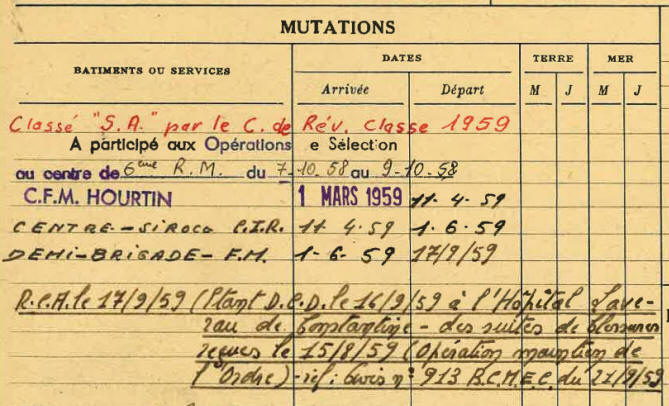 MUTATIONS
BATIMENTS OU SERVICES
DATES
TERRE
MER
Arrivée
Départ
M
J
M
J
Classé "S.A." par le C. de Rév. Classe 1959
A participé aux Opérations e Sélection
au centre de 6eme R.M. du 7-10.58 au 9-10-58
C.F.M. HOURTIN 1 MARS 1959 11-4-59
CENTRE-SIROCO C.I.R. 11 4.59 1.6.59
DEMI-BRIGADE-F.M. 1-6-59 17/9/59
R.C.A. le 17/9/59 (Etant D.C.D. le 16/9/59 à l'Hôpital Lave-
ran de Constantine - des suites de blessures
reçues le 15/8/59 (Opération maintien de
l'Ordre) - réf: Avis n° 913 B.C.M.E.C. du 21/9/59